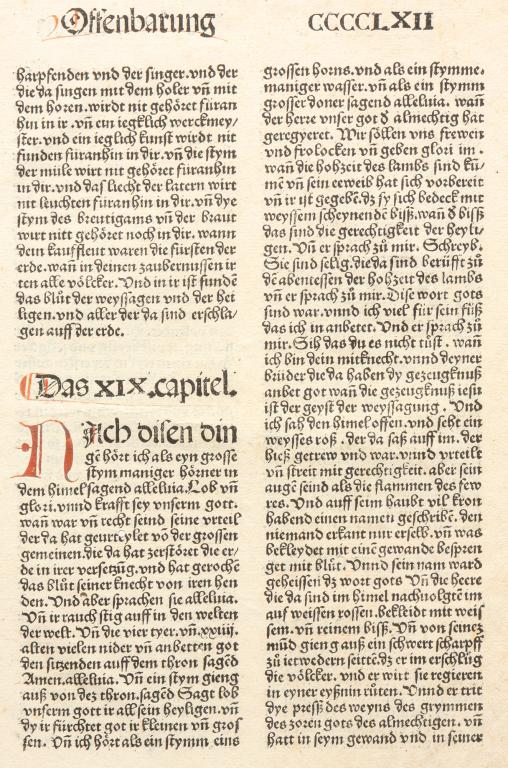 Offenbarung
CCCCCLXII
harpfenden vnd der singer.vnd der
die da singen mit dem holer vñ mit
dem horen.wirdt nit gehöret füran
hin in ir .vñ ein iegklich werckmey/
ster.vnd ein ieglich kunst wirdt nit
funden füranhin in dir.vñ die stym
der müle wirt nit gehöret füranhin
in dir.vnd das liecht der latern wirt
nit leuchten füranhin in dir.vñ dye
stym des breutigams vñ der braut
wirt nitt gehöret noch in dir. wann
dein kauffleut waren die fürsten der
erde.wañ in deinen zaubernussen ir
ten alle völcker. Vnd in ir ist funden
das blůt der weyssagen vnd der hei
ligen.vnd aller der da sind erschla/
gen auff der erde.
Das XIX.capitel.
NAch disen din
ge hört ich als eyn grosse
stym maniger hörner in
dem himel sagend alleluia.Lob vñ
glori.vnnd krafft sey vnserm gott.
wañ war vñ recht seind seine vrteil
der da hat geurteylet võ der grossen
gemeinen.die da hat zerstöret die er/
de in irer versetzũg.vnd hat gerochẽ
das blůt seiner knecht von iren hen
den. Vnd aber sprachen sie alleluia.
Vñ ir rauch stig auff in den welten
der welt. Vñ die vier tyer.vñ.xxiiij.
alten vielen nider vñ anbetten got
den sitzenden auff dem thron sagẽd
Amen.alleluia. Vñ ein stym gieng
auß von dez thron.sagẽd Sagt lob
vnserm gott ir all sein heyligen.vñ
dy ir fürchtet got ir kleinen vñ gros
sen. Vñ ich hört als ein stymm eins
grossen horns.vnd als ein stymme.
maniger wasser.vñ als ein stymm
grosser doner sagend alleluia. wañ
der herre vnser got d almechtig hat
geregyeret. Wir söllen vns frewen
vnd frolocken vñ geben glori im .
wañ die hohzeit des lambs sind kũ/
mẽ vñ sein eeweib hat sich vorbereit
vñ ir ist gegebẽ.dz sy sich bedeck mit
weyssem scheynendẽ biß.wañ d biß
das sind die gerechtigkeit der heyli/
gen. Vñ er sprach zů mir. Schreyb.
Sie sind selig.die da sind berüfft zů
dẽ abentessen der hohzeit des lambs
vñ er sprach zů mir.Dise wort gots
sind war.vnnd ich viel für sein füß
das ich in anbetet. Vnd er sprach zů
mir. Sih das du es nicht tůst . wañ
ich bin dein mitknecht.vnnd deyner
brüder die da haben dy gezeugknuß
anbet got wañ die gezeugknuß iesu
ist der geyst der weyssagung . Vnd
ich sah den himel offen.vnd seht ein
weysses roß .der da saß auff im. der
hieß getrew vnd war.vnnd vrteilt
vñ streit mit gerechtigkeit. aber sein
augẽ seind als die flammen des few
res. Vnd auff seim haubt vil kron
habend einen namen geschribẽ. den
niemand erkant nur er selb. vñ was
bekleydet mit einẽ gewande bespren
get mit blůt. Vnnd sein nam ward
geheissen dz wort gots Vñ die heere
die da sind im himel nachuolgtẽ im
auf weissen rossen. bekleidt mit weis
sem.vñ reinem biß. Vñ von seinez
mũd gieng auß ein schwert scharpff
zů ietwedern seittẽ.dz er im erschlüg
die völcker. vnd er wirt sie regieren
in eyner eyßnin růten. Vnnd er trit
dye preß des weyns des grymmen
des zoren gots des almechtigen. vñ
hatt in seym gewand vnd in seiner